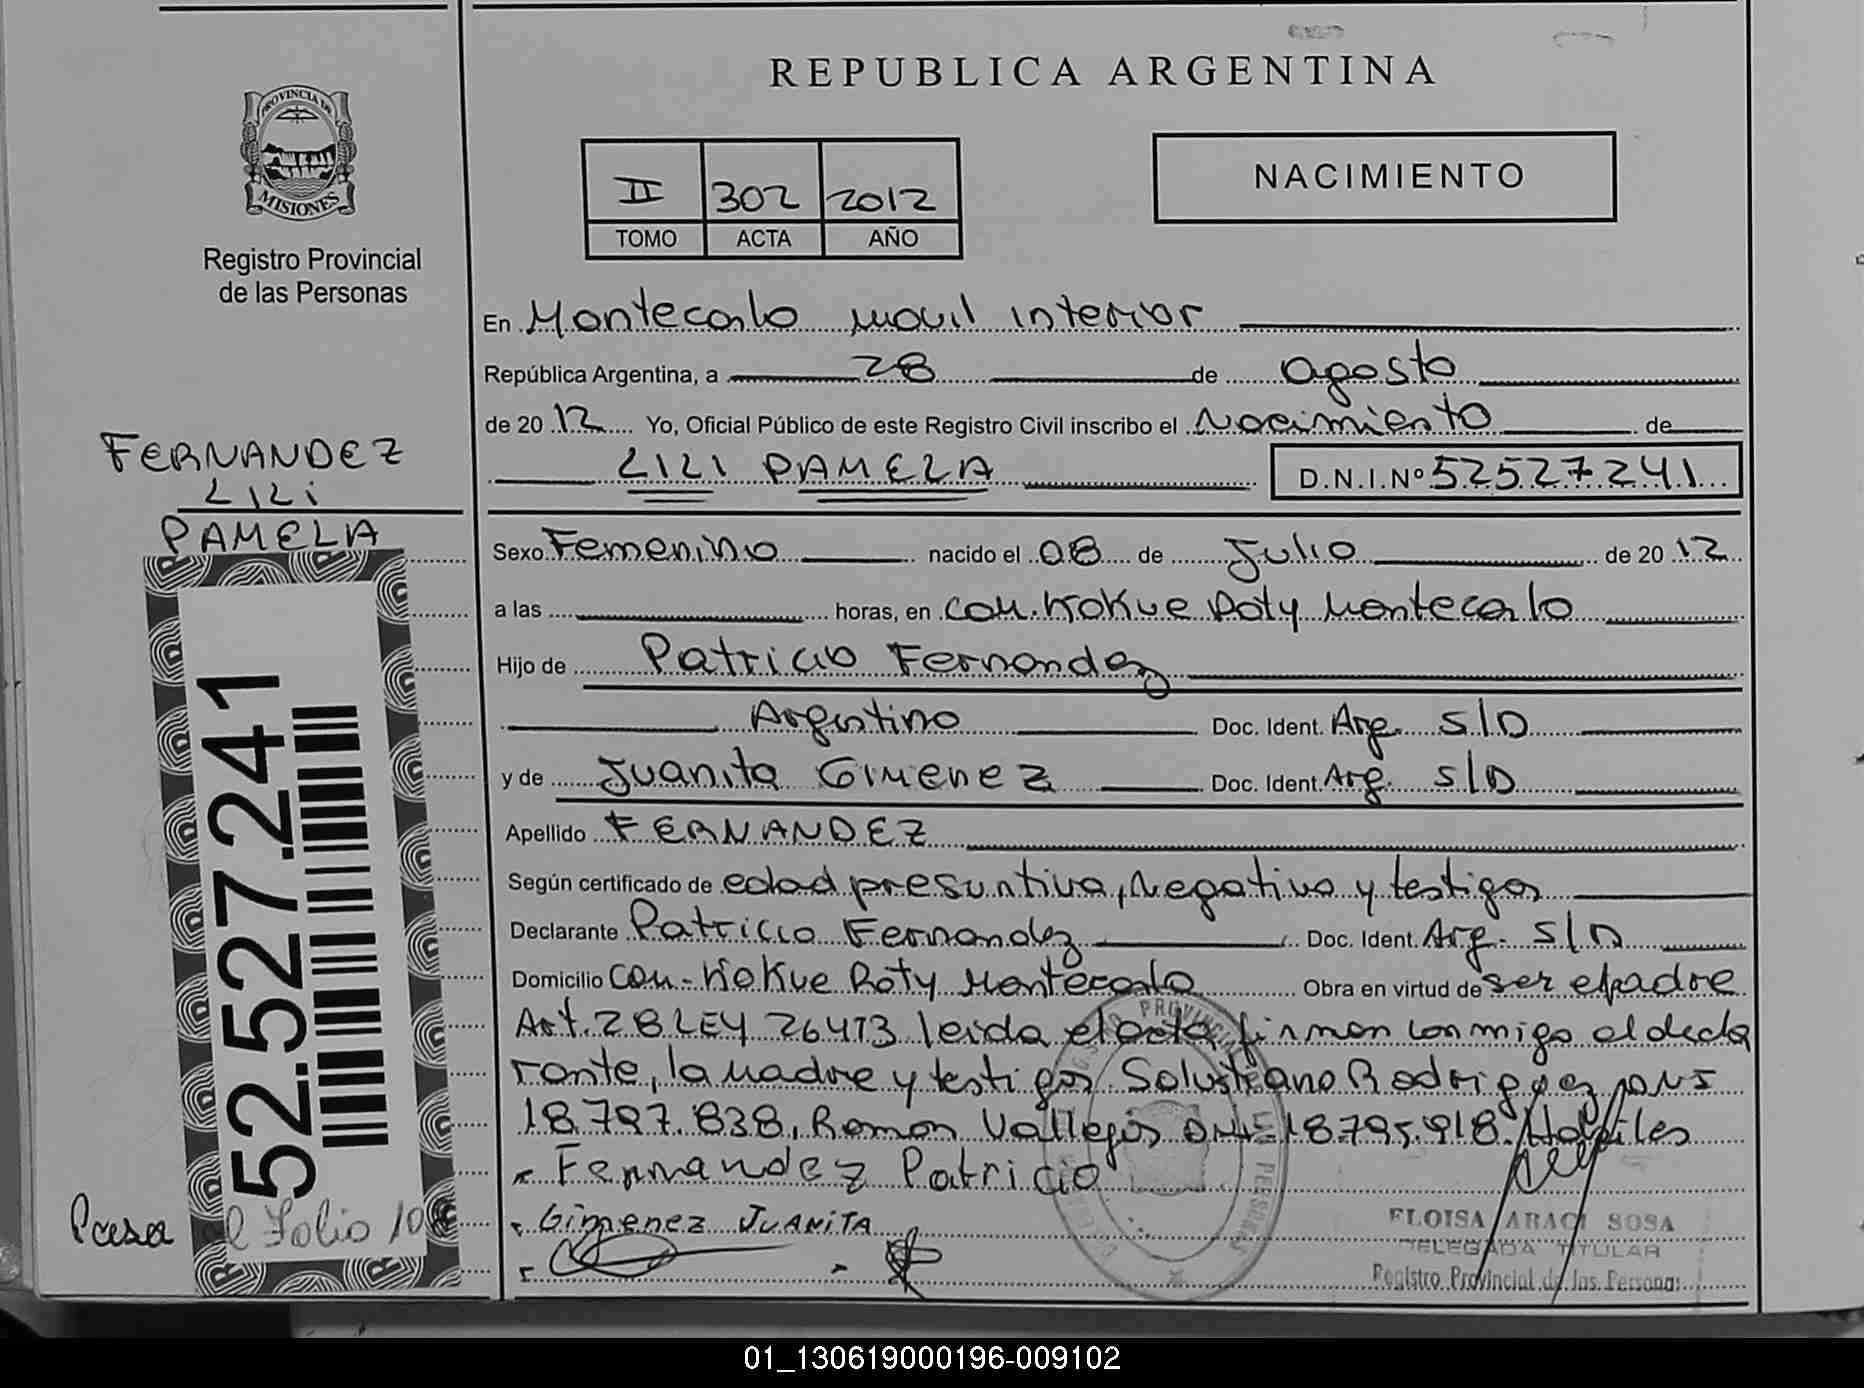 REPUBLICA ARGENTINA
PROVINCIA DE
MISIONES
Registro Provincial
de las Personas
II 302 2012
TOMO ACTA AÑO
NACIMIENTO
En Montecarlo movil interior
República Argentina, a 28 de agosto
de 20 12 Yo, Oficial Público de este Registro Civil inscribo el Nacimiento de
LILI PAMELA D.N.I.Nº 52527241
FERNANDEZ
LILI
PAMELA
Sexo Femenino nacido el 08 de Julio de 20 12
a las horas, en Com. Kokue Poty Montecarlo
Hijo de Patricio Fernandez
Argentino Doc. Ident. Arg. S/D
y de Juanita Gimenez Doc. Ident. Arg. S/D
Apellido FERNANDEZ
Según certificado de edad presuntiva, Negativo y testigos
Declarante Patricio Fernandez Doc. Ident. Arg. S/D
Domicilio Com. Kokue Poty Montecarlo Obra en virtud de ser el padre
Art. 28 LEY 26413 leida el acta firman conmigo el decla
rante, la madre y testigos Salustiano Rodriguez DNI
18.797.838, Ramon Vallejos DNI 18.795.918. Habiles
Fernandez Patricio
Gimenez JUANITA
52.527.241
Pasa al Folio 10
ELOISA ARACI SOSA
DELEGADA TITULAR
Registro Provincial de las Personas
01_130619000196-009102